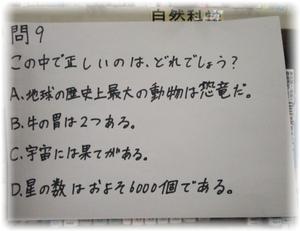 自然科物
問9
この中で正しいのは、どれでしょう?
A.地球の歴史上最大の動物は恐竜だ。
B.牛の胃は2つある。
C.宇宙には果てがある。
D.星の数はおよそ6000個である。